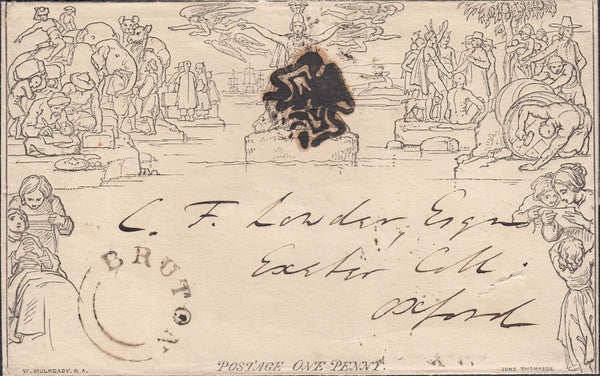 C. F. Lowder, Esqre
Exeter Coll.
Oxford
BRUTON
POSTAGE ONE PENNY.
W. MULREADY. R. A.
JOHN THOMPSON.